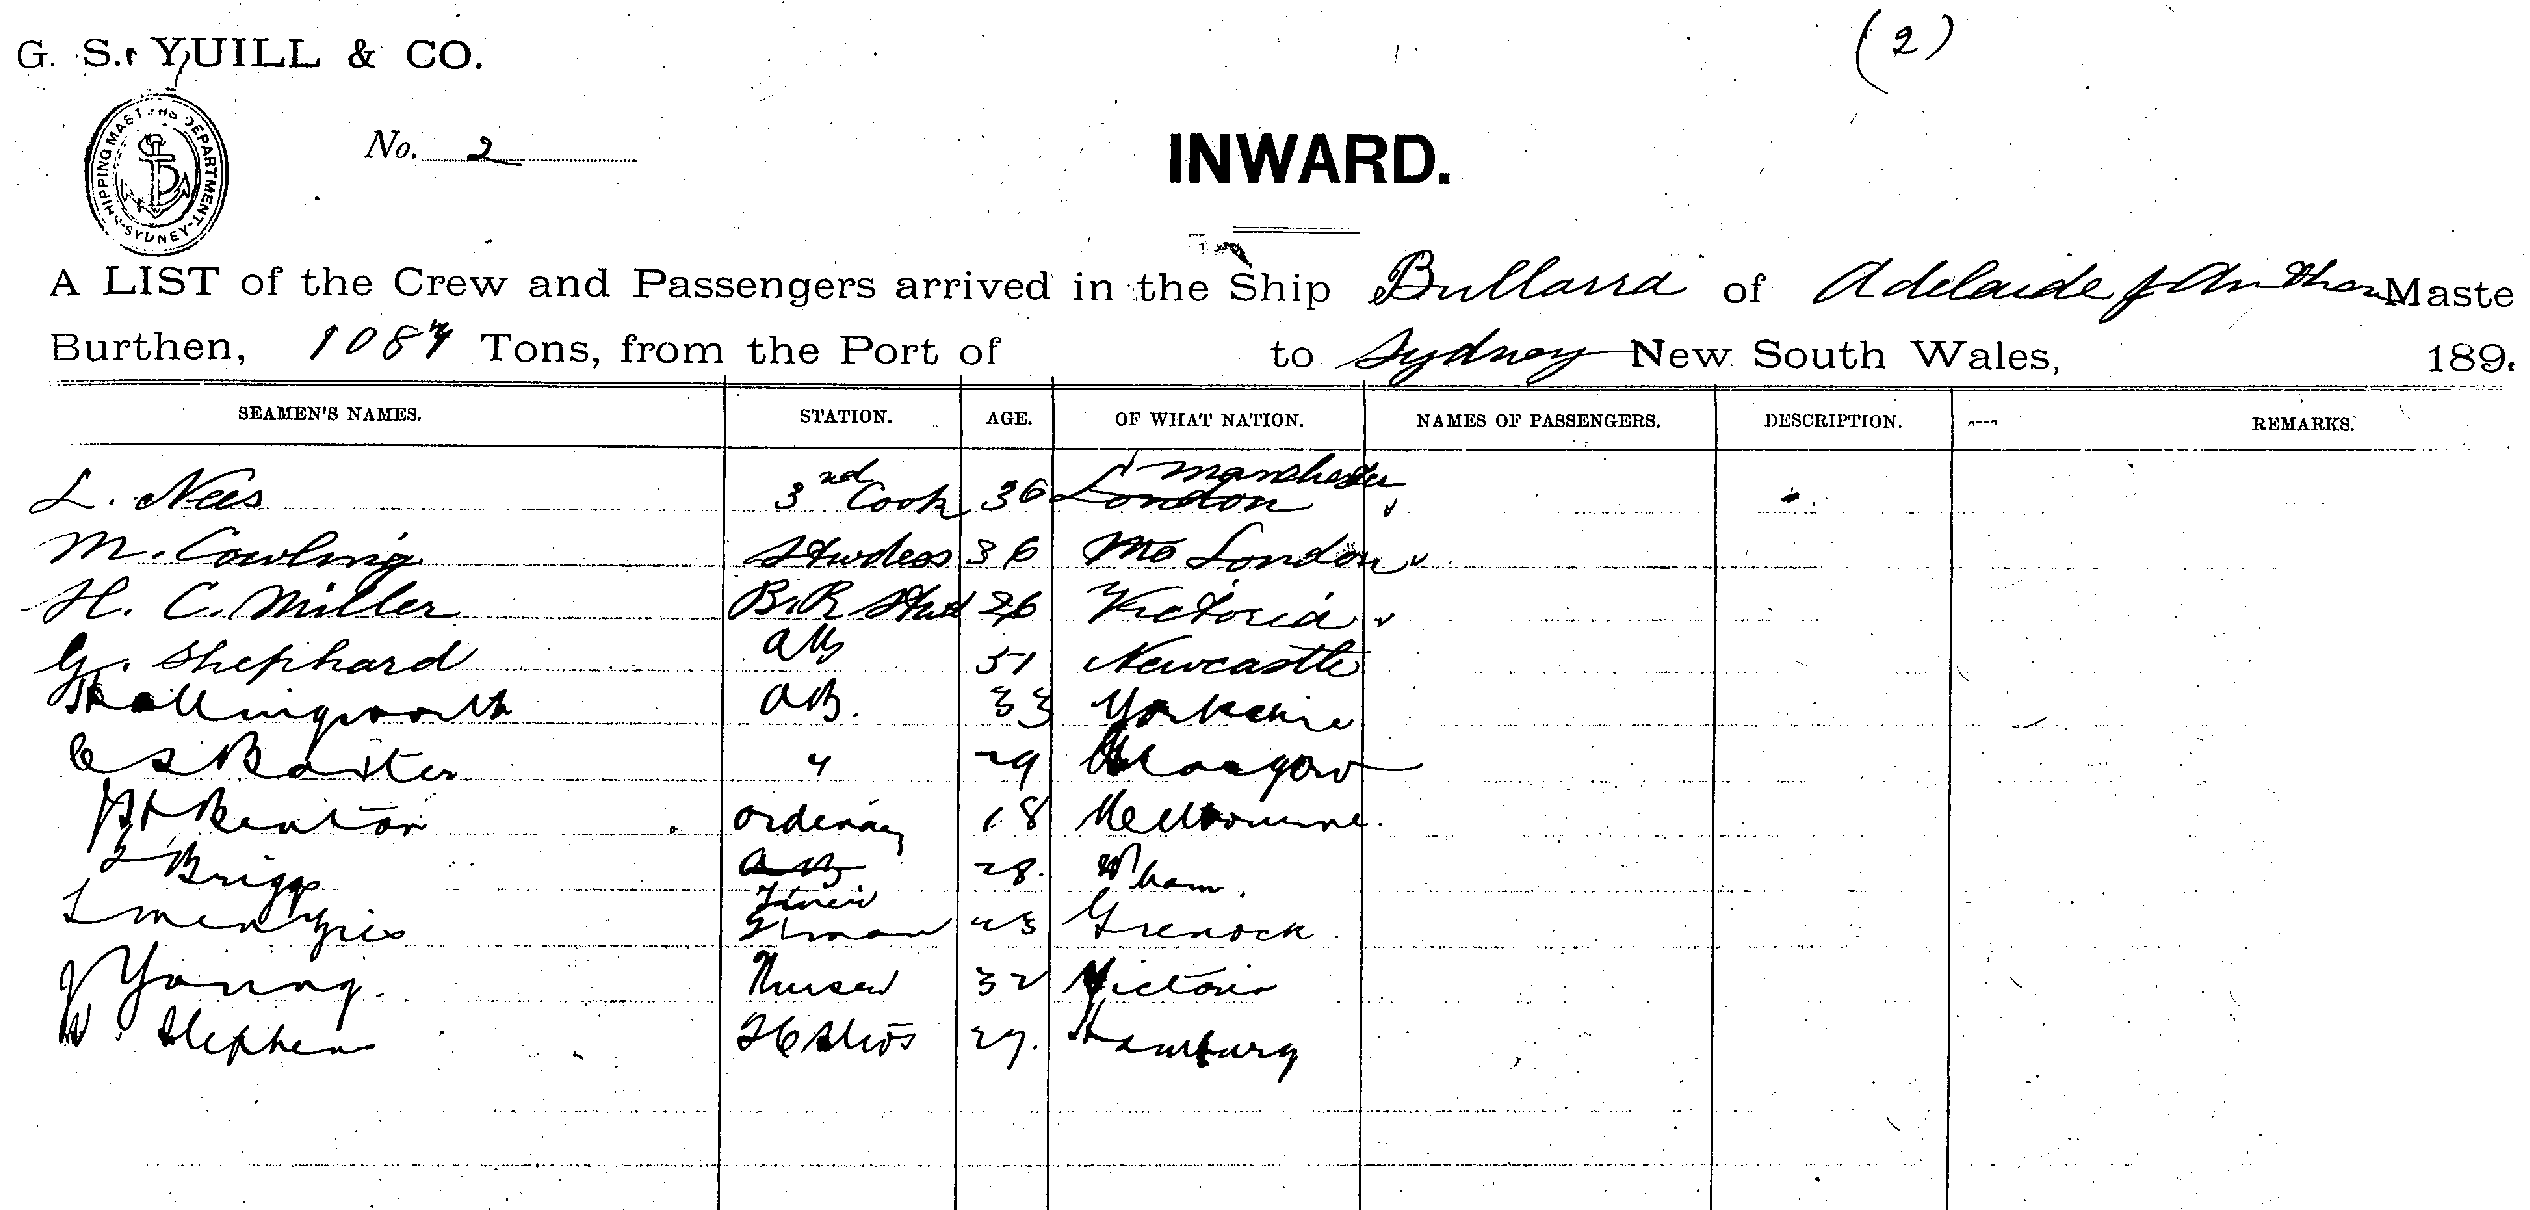 (2)
G. S. YUILL & CO.
SHIPPING MASTERS DEPARTMENT SYDNEY
No. 2
INWARD.
A LIST of the Crew and Passengers arrived in the Ship Bullarra of Adelaide Maste
Burthen, 1087 Tons, from the Port of to Sydney New South Wales, 189.
SEAMEN'S NAMES. STATION. AGE. OF WHAT NATION. NAMES OF PASSENGERS. DESCRIPTION. REMARKS.
L. Nees 3rd Cook 36 London Manchester
M. Cowling Stwdess 36 London
H. C. Miller B.R Stwd 26 Victoria
G. Shephard AB 51 Newcastle
Hollingworth AB. 33 Yorkshire
C S Baxter " 29 Glasgow
Benton ordinary 18 Melbourne.
Briggs AB 28.
Menzies Fireman 23 Grenock
J Young. 32 Victoria
W. Stephen 27. Hamburg